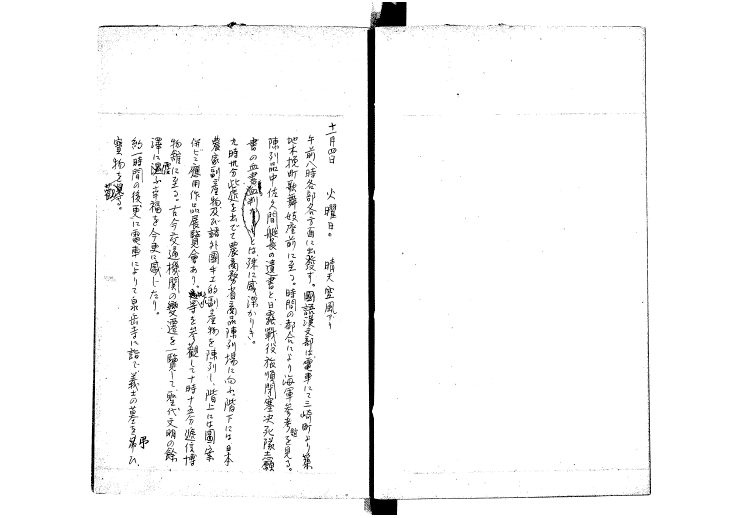 十一月四日 火曜日。 晴天空風アリ
午前八時各部各方面に出發す。國語漢文部は電車にて三崎町より築
地木挽町歌舞妓座前に至る。時間の都合により海軍參考館を見る。
陳列品中佐久間艇長の遺書と、日露戰役旅順閉塞決死隊志願
書の血書血判とは、殊に感深かりき。
九時卅分此處を出でて農商務省商品陳列場に向ふ。階下には日本
農家副産物及び諸外國手工的副産物を陳列し、階上には圖案
併びに應用作品展覽會あり。等を參觀して十時十五分遞信博
物館に至る。古今交通機關の變遷を一覽して、聖代文明の餘
澤に遇ふ幸福を今更に感じたり。
約一時間の後更に電車によりて泉岳寺に詣で義士の墓を弔ひ、
寶物を觀る。